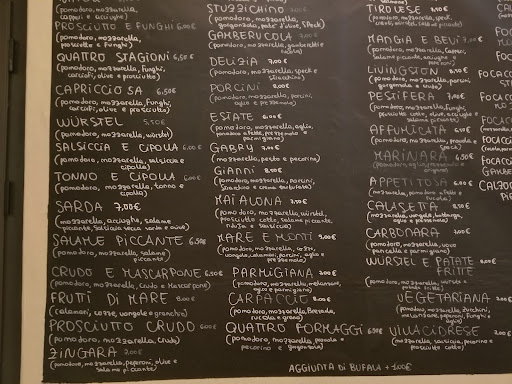 (pomodoro, mozzarella,
capperi e acciughe)
PROSCIUTTO E FUNGHI 6.00€
(pomodoro, mozzarella,
prosciutto e funghi)
QUATTRO STAGIONI 6,50€
(pomodoro, mozzarella, funghi,
carciofi, olive e prosciutto)
CAPRICCIOSA 6.50€
(pomodoro, mozzarella, funghi,
carciofi, olive e prosciutto)
WÜRSTEL 5,50€
(pomodoro, mozzarella, würstel)
SALSICCIA E CIPOLLA 6.00€
(pomodoro, mozzarella, salsiccia e
cipolla)
TONNO E CIPOLLA 6.00€
(pomodoro, mozzarella, tonno e
cipolla)
SARDA 7,00€
(mozzarella, acciughe, salame
piccante, salsiccia secca sarda e olive)
SALAME PICCANTE 6.50€
(pomodoro, mozzarella, salame
piccante)
CRUDO E MASCARPONE 6.50€
(pomodoro, mozzarella, crudo e mascarpone)
FRUTTI DI MARE 8.00€
(calamari, cozze, vongole e granchio)
PROSCIUTTO CRUDO 6.00€
(pomodoro, mozzarella, crudo)
ZINGARA 7.00€
(pomodoro, mozzarella, peperoni, olive e
salame piccante)
STUZZICHINO
(pomodoro, mozzarella,
gorgonzola, patè d'olive, speck)
GAMBERUCOLA
(pomodoro, mozzarella, gamberetti e
rucola)
DELIZIA 7.00€
(pomodoro, mozzarella, speck e
stracchino)
PORCINI
(pomodoro, mozzarella, porcini,
aglio e prezzemolo)
ESTATE 6.00€
(pomodoro, mozzarella, aglio,
pomodoro a fette, prezzemolo e
parmigiano)
GABRY 7.00€
(mozzarella, pesto e pecorino)
GIANNI 8.00€
(pomodoro, mozzarella, porcini,
stracchino e crema tartufata)
MAIALONA
(pomodoro, mozzarella, würstel,
prosciutto cotto, salame piccante,
nduja e salsiccia)
MARE E MONTI 9.00€
(pomodoro, mozzarella, cozze,
vongole, calamari, porcini, aglio e
prezzemolo)
PARMIGIANA 7.00€
(pomodoro, mozzarella, melanzane,
aglio e parmigiano)
CARPACCIO 8.00€
(pomodoro, mozzarella, bresaola,
rucola e grana)
QUATTRO FORMAGGI 6.50€
(pomodoro, mozzarella, provola e
pecorino e gorgonzola)
TIROLESE
(pomodoro, mozzarella, speck,
MANGIA E BEVI 7.00€
(pomodoro, mozzarella, capperi,
salame piccante, acciughe e
LIVINGSTON 8.00€
(pomodoro, mozzarella, porcini,
gorgonzola e crudo)
PESTIFERA 7.00€
(pomodoro, mozzarella, funghi,
prosciutto cotto, olive, acciughe e
salame piccante)
AFFUMICATA 6.50€
(pomodoro, mozzarella, provola e
speck)
MARINARA 4.50€
(pomodoro, aglio, prezzemolo e
origano)
APPETITOSA 6.00€
(mozzarella, pomodoro a fette e
rucola)
CALASETTA 8.50€
(mozzarella, vongole, bottarga,
aglio e prezzemolo)
CARBONARA 7.00€
(pomodoro, mozzarella, uovo
pancetta e parmigiano)
WÜRSTEL E PATATE
FRITTE 6.00€
(pomodoro, mozzarella, würstel e
patate fritte)
VEGETARIANA 7.00€
(pomodoro, mozzarella, zucchini,
melanzane, peperoni, funghi e
aglio)
VILLACIDRESE 7.00€
(mozzarella, salsiccia, pecorino e
prosciutto cotto)
AGGIUNTA DI BUFALA + 1.00€
FOCACC
FOCACC
FOCACC
FOCACCI
FOCACCIA
GAMBER
CALZO